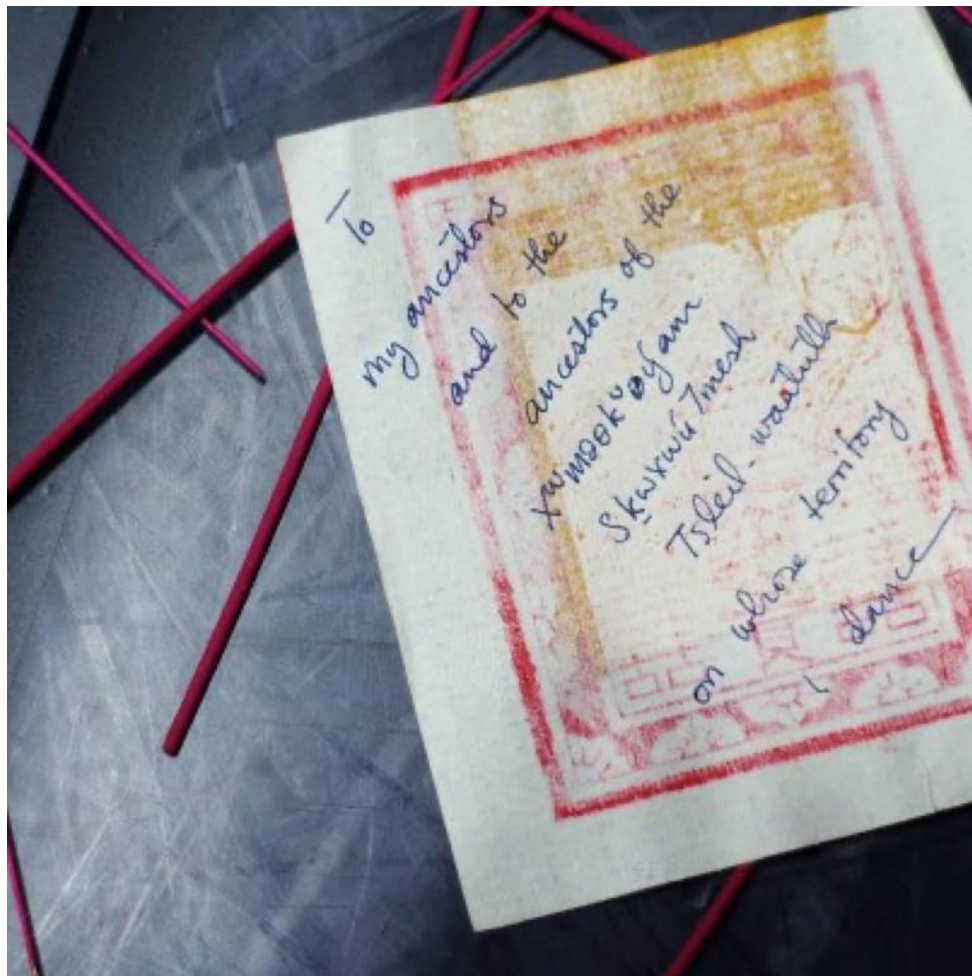 To
my ancestors
and to the
ancestors of the
xwməθkʷəy̓əm
Skwxwú7mesh
Tsleil-waututh
on whose territory
I dance